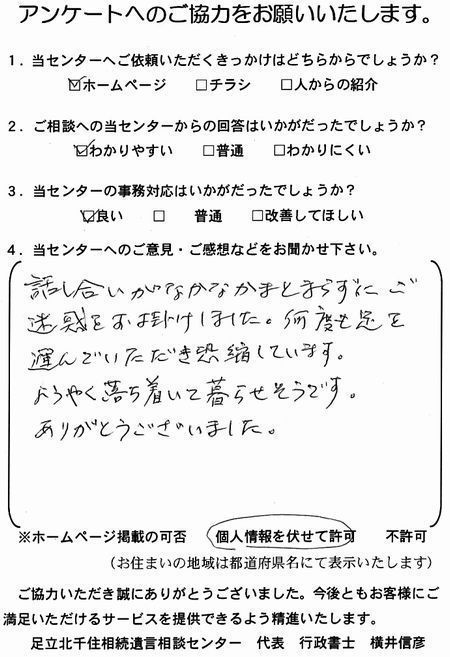 アンケートへのご協力をお願いいたします。
1．当センターへご依頼いただくきっかけはどちらからでしょうか?
☑ホームページ □チラシ □人からの紹介
2．ご相談への当センターからの回答はいかがだったでしょうか?
☑わかりやすい □普通 □わかりにくい
3．当センターの事務対応はいかがだったでしょうか?
☑良い □ 普通 □改善してほしい
4．当センターへのご意見・ご感想などをお聞かせ下さい。
話し合いがなかなかまとまらずにご
迷惑をお掛けしました。何度も足を
運んでいただき恐縮しています。
ようやく落ち着いて暮らせそうです。
ありがとうございました。
※ホームページ掲載の可否 個人情報を伏せて許可 不許可
（お住まいの地域は都道府県名にて表示いたします）
ご協力いただき誠にありがとうございました。今後ともお客様にご
満足いただけるサービスを提供できるよう精進いたします。
足立北千住相続遺言相談センター 代表 行政書士 横井信彦